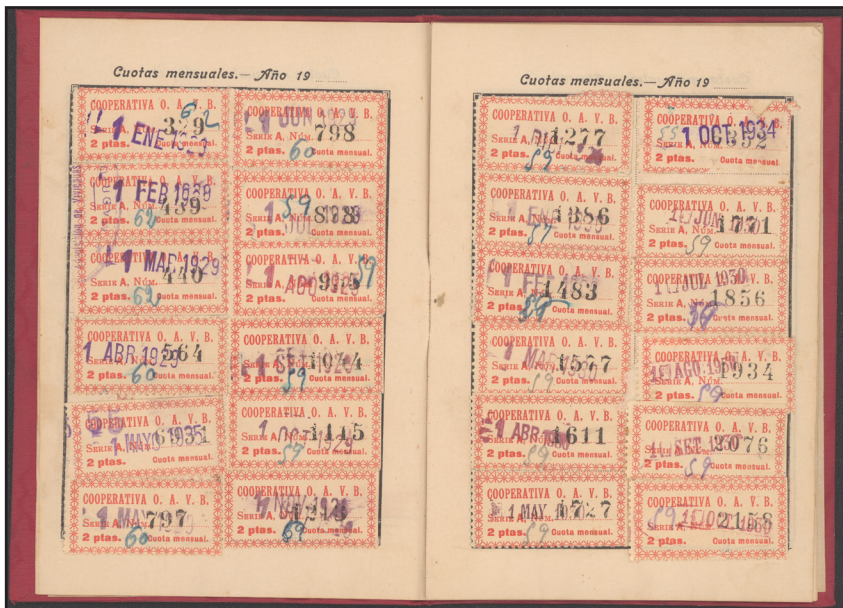 Cuotas mensuales.— Año 19
COOPERATIVA O. A. V. B.
SERIE A, NÚM.
1 ENE
2 ptas. Cuota mensual.
COOPERATIVA O. A. V. B.
1 FEB 1929
SERIE A, NÚM. 439
2 ptas. 62 Cuota mensual.
COOPERATIVA O. A. V. B.
1 MAR 1929
SERIE A, NÚM. 440
2 ptas. 62 Cuota mensual.
COOPERATIVA O. A. V. B.
1 ABR 1929
SERIE A, NÚM. 564
2 ptas. 60 Cuota mensual.
COOPERATIVA O. A. V. B.
SERIE A, NÚM.
1 MAYO 1935
2 ptas. Cuota mensual.
COOPERATIVA O. A. V. B.
SERIE A, NÚM. 797
1 MAY
2 ptas. 60 Cuota mensual.
COOPERATIVA O. A. V. B.
1 JUN
SERIE A, NÚM. 798
2 ptas. 60 Cuota mensual.
COOPERATIVA O. A. V. B.
59
SERIE A, NÚM.
2 ptas. Cuota mensual.
COOPERATIVA O. A. V. B.
59
SERIE A, NÚM.
1 AGO
2 ptas. Cuota mensual.
COOPERATIVA O. A. V. B.
SERIE A, NÚM.
2 ptas. 59 Cuota mensual.
COOPERATIVA O. A. V. B.
SERIE A, NÚM. 1115
2 ptas. 59 Cuota mensual.
COOPERATIVA O. A. V. B.
1 NOV
SERIE A, NÚM.
2 ptas. Cuota mensual.
Cuotas mensuales.— Año 19
COOPERATIVA O. A. V. B.
SERIE A, NÚM. 1277
2 ptas. 59 Cuota mensual.
COOPERATIVA O. A. V. B.
SERIE A, NÚM. 1386
2 ptas. Cuota mensual.
COOPERATIVA O. A. V. B.
1 FEB
SERIE A, NÚM. 1483
2 ptas. Cuota mensual.
COOPERATIVA O. A. V. B.
1 MAR
SERIE A, NÚM. 1577
2 ptas. 59 Cuota mensual.
COOPERATIVA O. A. V. B.
1 ABR
SERIE A, NÚM. 1611
2 ptas. 59 Cuota mensual.
COOPERATIVA O. A. V. B.
SERIE A, NÚM. 1727
1 MAY
2 ptas. 59 Cuota mensual.
COOPERATIVA O. A. V. B.
55 1 OCT 1934
SERIE A, NÚM. 352
2 ptas. Cuota mensual.
COOPERATIVA O. A. V. B.
JUN
SERIE A, NÚM. 1771
2 ptas. 59 Cuota mensual.
COOPERATIVA O. A. V. B.
JUL 1930
SERIE A, NÚM. 1856
2 ptas. Cuota mensual.
COOPERATIVA O. A. V. B.
AGO
SERIE A, NÚM. 1934
2 ptas. 59 Cuota mensual.
COOPERATIVA O. A. V. B.
SET
SERIE A, NÚM. 2076
2 ptas. 59 Cuota mensual.
COOPERATIVA O. A. V. B.
SERIE A, NÚM. 2158
2 ptas. Cuota mensual.